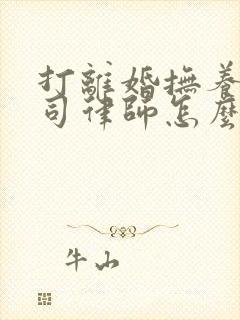 打離婚撫養
司律師怎麼
牛山